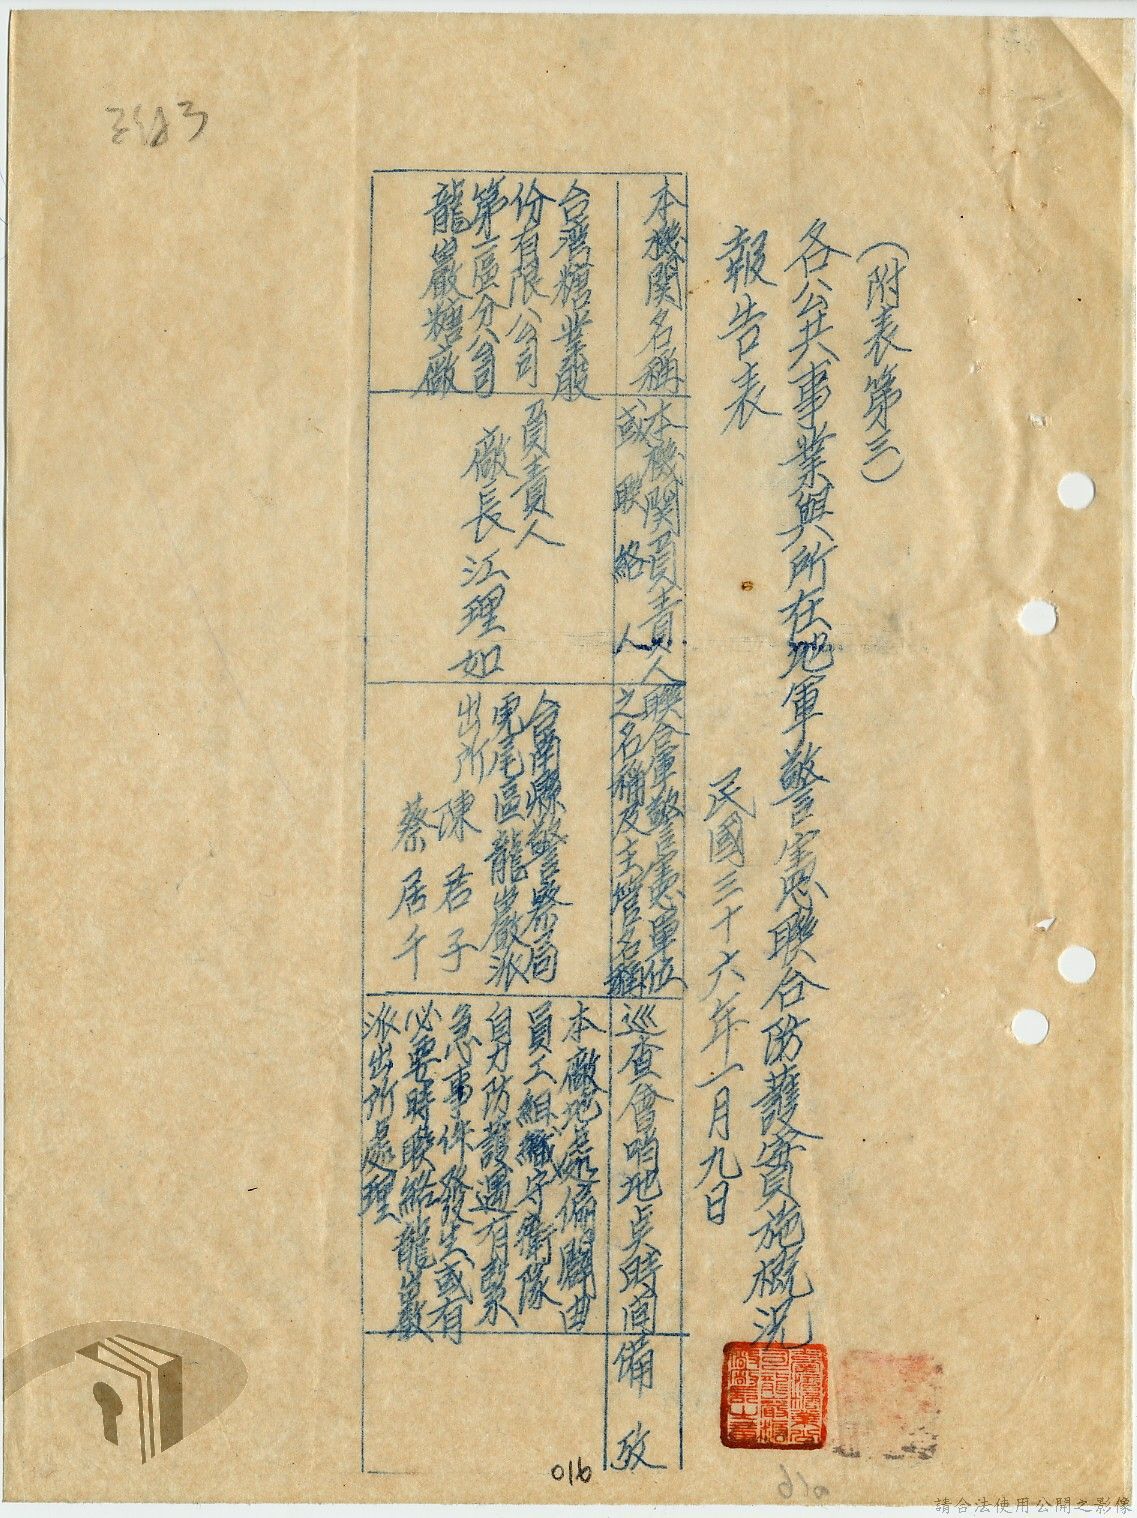 (附表第三)
各公共事業與所在地軍警憲聯合防護實施概況
報告表
民國三十六年一月九日
本機関名稱
本機関負責人
或聯絡人
聯合軍警憲單位
之名稱及主管名稱
巡查會哨地点時间
備攷
台灣糖業股
份有限公司
第二區分公司
龍巖糖廠
負責人
廠長江理如
台南縣警察局
虎尾區龍巖派
出所陳君子
蔡居千
本廠地處偏闢由
員工組織守衛隊
自力防護遇有緊
急事件發生或有
必要時聯絡龍巖
派出所處理
016
016
請合法使用公開之影像